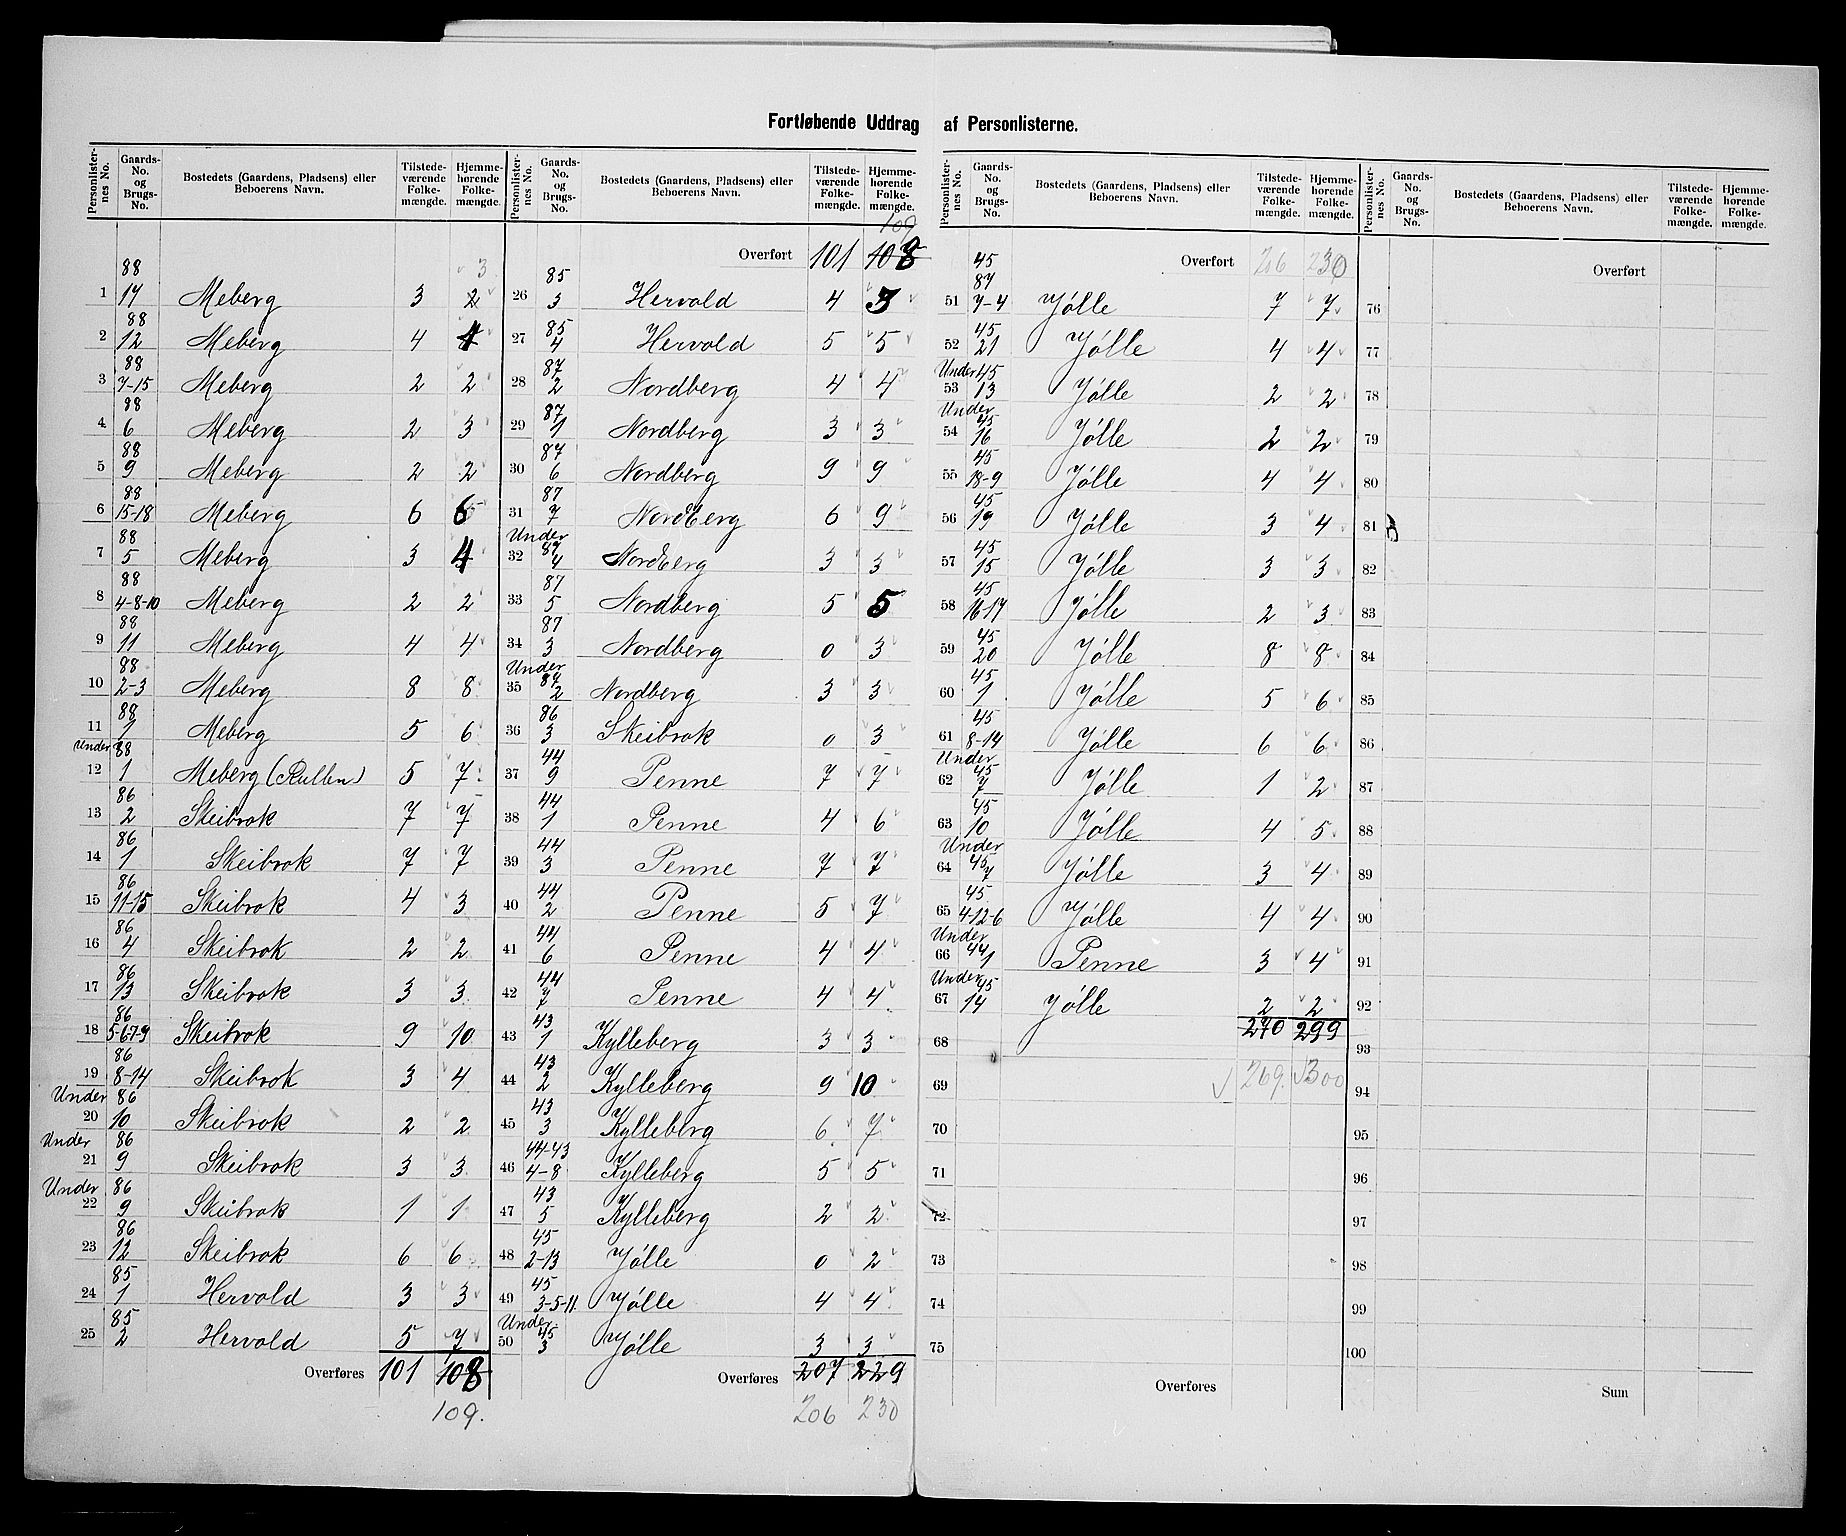 Fortløbende Uddrag af Personlisterne.
Personlister-nes No. Gaards-No. og Brugs-No. Bostedets (Gaardens, Pladsens) eller Beboerens Navn. Tilstede-værende Folke-mængde. Hjemme-hørende Folke-mængde.
3
1 88 17 Meberg 3 2
2 88 12 Meberg 4 4
3 88 7-15 Meberg 2 2
4 88 6 Meberg 2 3
5 88 9 Meberg 2 2
6 88 15-18 Meberg 6 6
7 88 5 Meberg 3 4
8 88 4-8-10 Meberg 2 2
9 88 11 Meberg 4 4
10 88 2-3 Meberg 8 8
11 88 1 Meberg 5 6
12 Under 88 1 Meberg (Rullen) 5 7
13 86 2 Skeibrok 7 7
14 86 1 Skeibrok 7 7
15 86 11-15 Skeibrok 4 3
16 86 4 Skeibrok 2 2
17 86 13 Skeibrok 3 3
18 86 5-6-7-9 Skeibrok 9 10
19 86 8-14 Skeibrok 3 4
20 Under 86 10 Skeibrok 2 2
21 Under 86 9 Skeibrok 3 3
22 Under 86 9 Skeibrok 1 1
23 86 12 Skeibrok 6 6
24 85 1 Hervold 3 3
25 85 2 Hervold 5 7
Overføres 101 108
109.
Personlister-nes No. Gaards-No. og Brugs-No. Bostedets (Gaardens, Pladsens) eller Beboerens Navn. Tilstede-værende Folke-mængde. Hjemme-hørende Folke-mængde.
109
Overført 101 108
26 85 3 Hervold 4 3
27 85 4 Hervold 5 5
28 87 2 Nordberg 4 4
29 87 1 Nordberg 3 3
30 87 6 Nordberg 9 9
31 87 7 Nordberg 6 9
32 Under 87 4 Nordberg 3 3
33 87 5 Nordberg 5 5
34 87 3 Nordberg 0 3
35 Under 87 2 Nordberg 3 3
36 86 3 Skeibrok 0 3
37 44 9 Penne 7 7
38 44 1 Penne 4 6
39 44 3 Penne 7 7
40 44 2 Penne 5 7
41 44 6 Penne 4 4
42 44 7 Penne 4 4
43 43 1 Kylleberg 3 3
44 43 2 Kylleberg 9 10
45 43 3 Kylleberg 6 7
46 44-43 4-8 Kylleberg 5 5
47 43 5 Kylleberg 2 2
48 45 2-13 Jølle 0 2
49 45 3-5-11 Jølle 4 4
50 Under 45 3 Jølle 3 3
Overføres 207 229
206 230
Personlister-nes No. Gaards-No. og Brugs-No. Bostedets (Gaardens, Pladsens) eller Beboerens Navn. Tilstede-værende Folke-mængde. Hjemme-hørende Folke-mængde.
Overført 206 230
51 45 87 7-4 Jølle 7 7
52 45 21 Jølle 4 4
53 Under 45 13 Jølle 2 2
54 Under 45 16 Jølle 2 2
55 45 18-9 Jølle 4 4
56 45 19 Jølle 3 4
57 45 15 Jølle 3 3
58 45 16-17 Jølle 2 3
59 45 20 Jølle 8 8
60 45 1 Jølle 5 6
61 45 8-14 Jølle 6 6
62 Under 45 7 Jølle 1 2
63 45 10 Jølle 4 5
64 Under 45 7 Jølle 3 4
65 45 4-12-6 Jølle 4 4
66 Under 44 1 Penne 3 4
67 Under 45 14 Jølle 2 2
270 299
68
69 269. 300
70
71
72
73
74
75
Overføres
Personlister-nes No. Gaards-No. og Brugs-No. Bostedets (Gaardens, Pladsens) eller Beboerens Navn. Tilstede-værende Folke-mængde. Hjemme-hørende Folke-mængde.
Overført
76
77
78
79
80
81
82
83
84
85
86
87
88
89
90
91
92
93
94
95
96
97
98
99
100
Sum